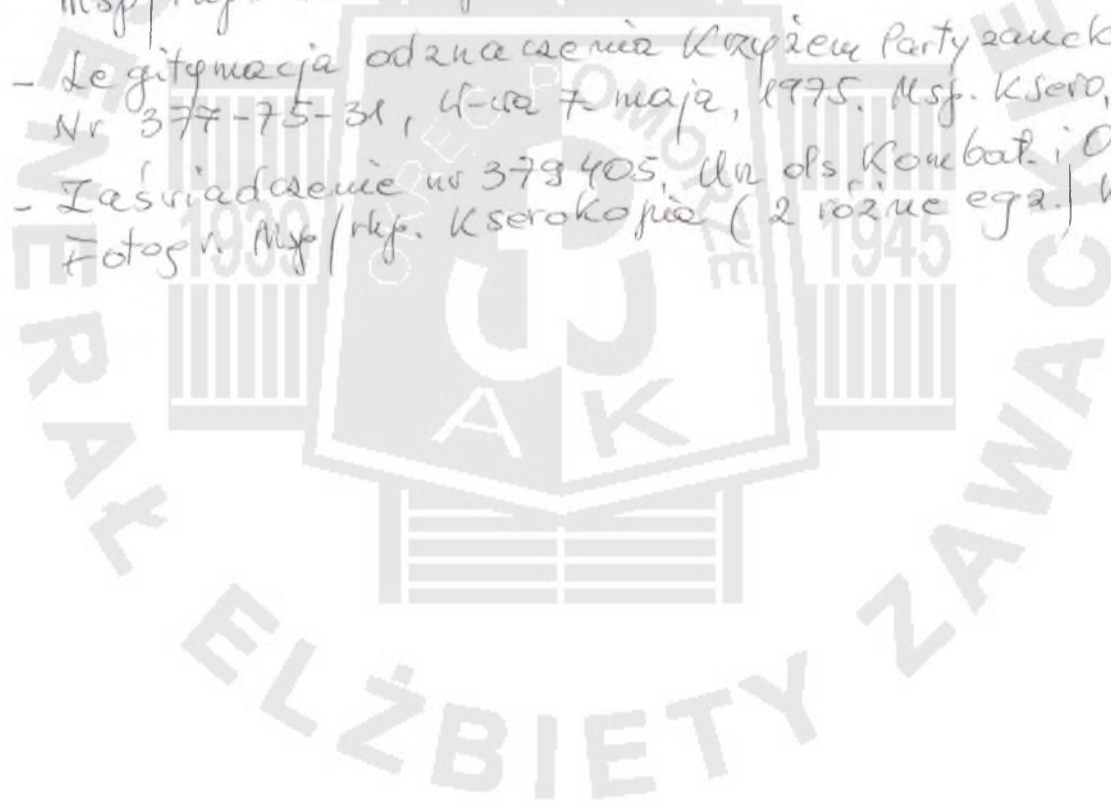 Msp/rkp
- Legitymacja odznaczenia Krzyżem Partyzanck
Nr 377-75-31, W-wa 7 maja, 1975. Msp. Ksero,
- Zaświadczenie nr 379405, Urz ds. Kombat. i O
Fotogr. Msp/rkp. Kserokopia (2 różne egz.)
OKRĘG POMORZE
1939
1945
AK
GENERAŁ ELŻBIETY ZAWACKIEJ